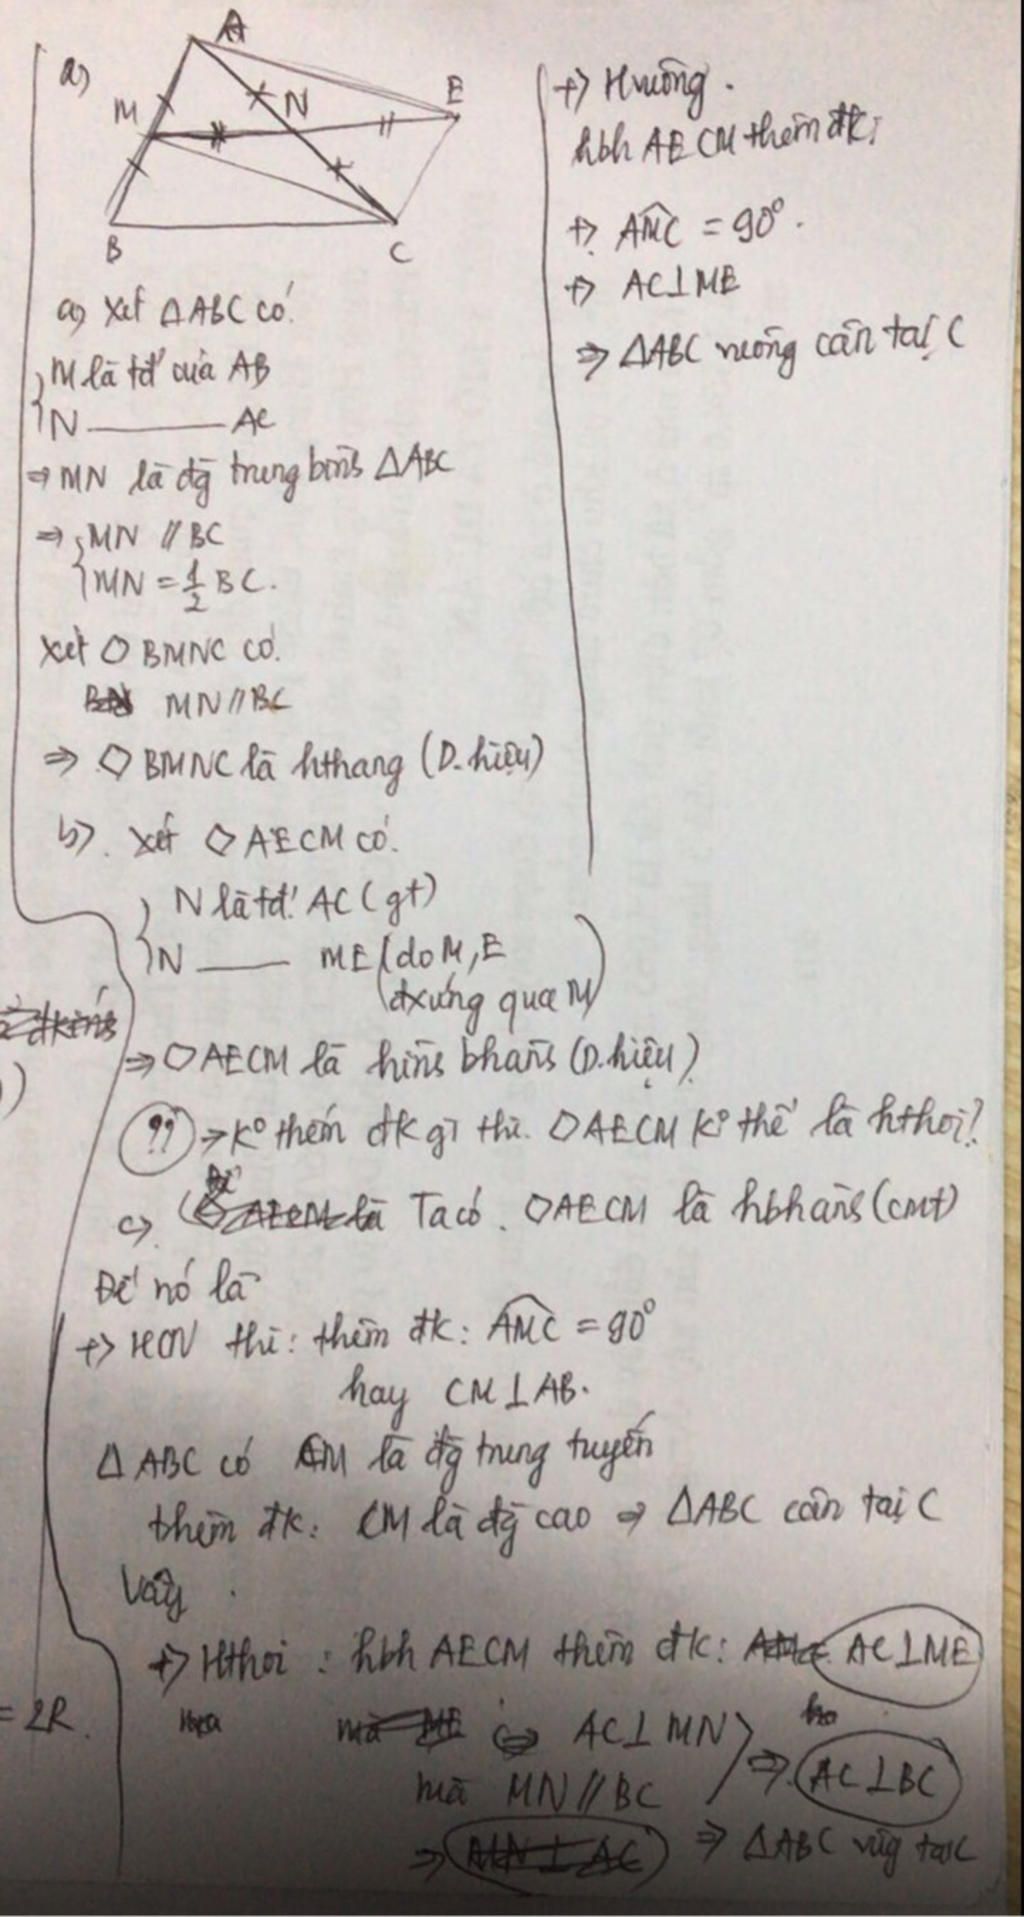 a)
A
M
N
E
B
C
a) Xét △ABC có:
M là tđ của AB
N ——— AC
⇒ MN là đg trung bình △ABC
⇒ MN // BC
MN = 1/2 BC.
Xét ◇ BMNC có.
MN // BC
⇒ ◇ BMNC là hthang (D.hiệu)
b). Xét ◇ AECM có.
N là tđ. AC (gt)
N —— ME (do M, E
đxứng qua M)
⇒ ◇ AECM là hình bhành (D.hiệu)
?? → Kº thêm đk gì thì ◇ AECM kº thể là hthoi?
c) Ta có. ◇ AECM là hbhành (cmt)
Để nó là
+) HCN thì: thêm đk: AMC = 90º
hay CM ⊥ AB.
△ ABC có CM là đg trung tuyến
thêm đk: CM là đg cao ⇒ △ABC cân tại C
Vậy
+) Hthoi: hbh AECM thêm đk: AC ⊥ ME
⇔ AC ⊥ MN
mà MN // BC
⇒ AC ⊥ BC
⇒ △ABC vúg tại C
= 2R.
+) Hvuông.
hbh AECM thêm đk:
+) AMC = 90º.
+) AC ⊥ ME
⇒ △ABC vuông cân tại C